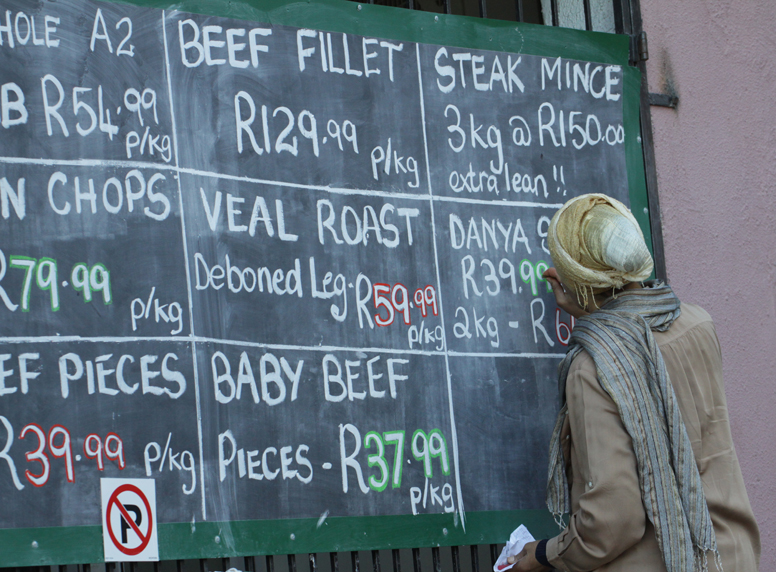 HOLE A2
B R54.99
p/kg
BEEF FILLET
R129.99
p/kg
STEAK MINCE
3kg @ R150.00
extra lean!!
N CHOPS
R79.99
p/kg
VEAL ROAST
Deboned Leg. R59.99
p/kg
DANYA S
R39.99
2kg - R6
EF PIECES
R39.99 p/kg
BABY BEEF
PIECES - R37.99
p/kg
P